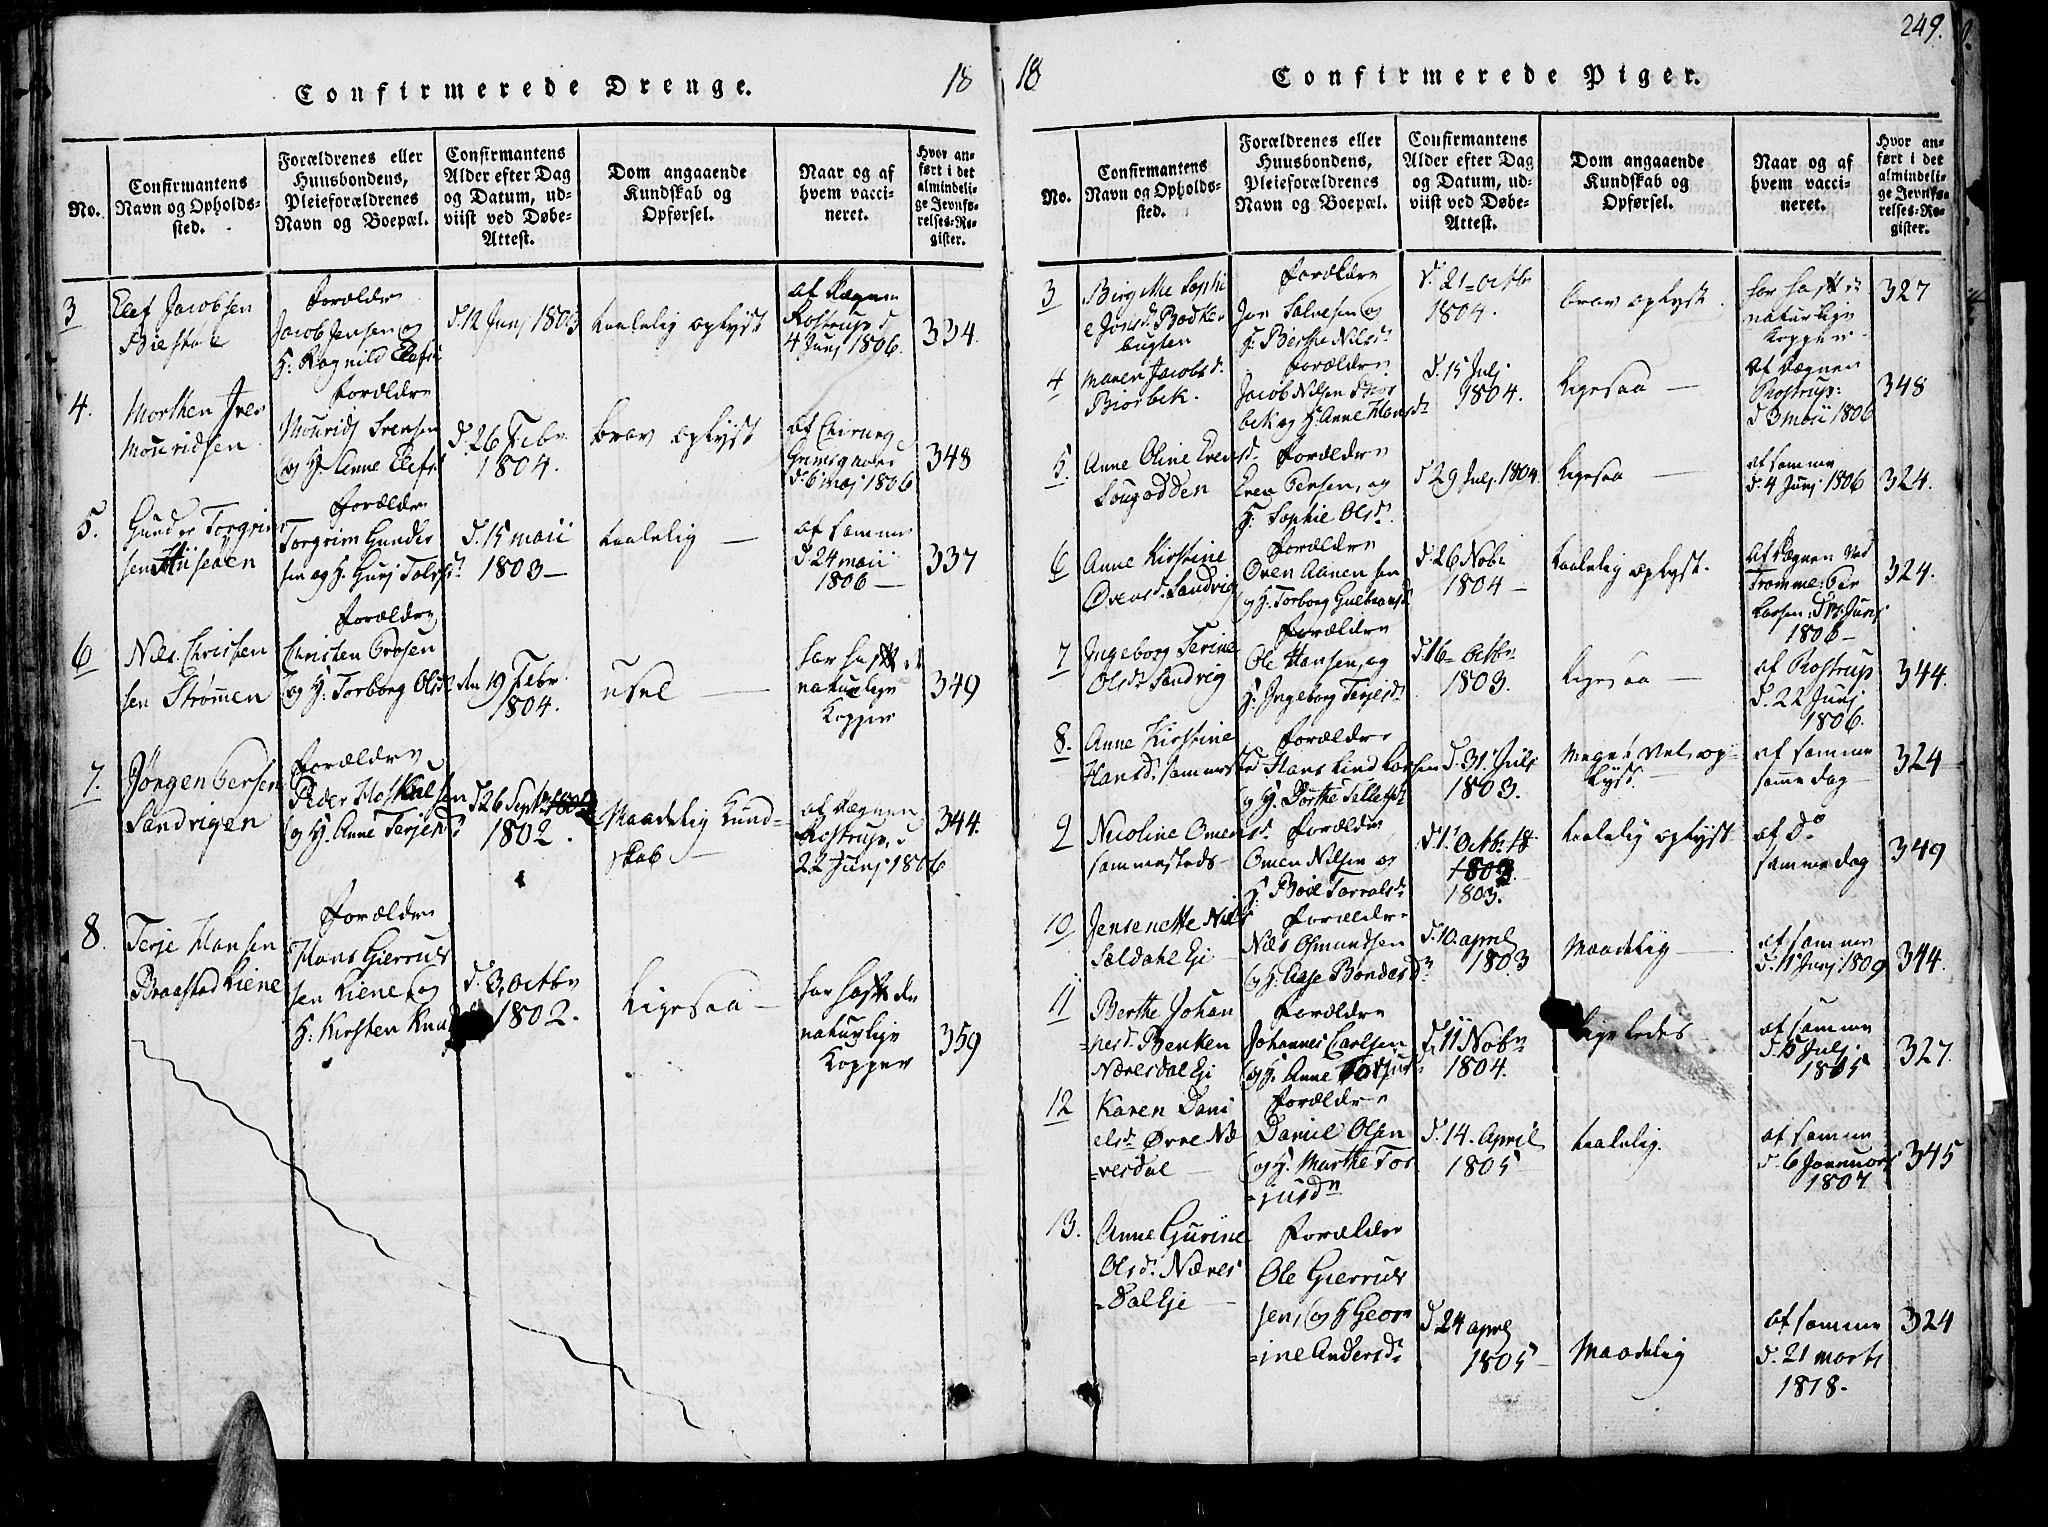 249.
Confirmerede Drenge.
18
No.
Confirmantens
Navn og Opholds-
sted.
Forældrenes eller
Huusbondens,
Pleieforældrenes
Navn og Boepæl.
Confirmantens
Alder efter Dag
og Datum, ud-
viist ved Døbe-
Attest.
Dom angaaende
Kundskab og
Opførsel.
Naar og af
hvem vacci-
neret.
Hvor an-
ført i det
almindeli-
ge Jevnfø-
relses-Re-
gister.
3
Elef Jacobsen
Forældre
Jacob Jensen og
H: Ragnild Elefsd
d. 12 Junj 1803
taalelig oplyst
af Degnen
Rostrup d
4 Junj 1806.
334.
4.
Morthen Iver
Mouridsen
Forældre
Mourids Ivensen
og H: Anne Elefsd
d. 26 Febr.
1804.
brav oplyst
af Chirurg
d. 6 maj 1806
348
5.
Gunder Torgrim
sen Hüseaen
Forældre
Torgrim Gunder
sen og H. Gurj Talefsd
d. 15 maii
1803 —
taalelig —
af samme
d. 24 maii
1806 —
337
6
Niels Christen
sen Strømmen
Forældre
Christen Orosen
og H: Torborg Olsd
den 19 Febr.
1804.
usel —
har hafft de
naturlige
Kopper
349
7.
Jørgen Persen
Sandvigen
Forældre
Peder Hoskulsen
og H. Anne Terjesd
d. 26 Septbr 1802
1802.
Maadelig Kund=
skab —
af Degnen
Rostrup, d
22 Junj 1806
344.
8.
Terje Hansen
Braastad Kiene
Forældre
Hans Gierruls
sen Kiene og
H: Kirsten Knud
d. 3, Octbr
1802.
Ligesaa —
har hafft de
naturlige
Kopper
359
18
Confirmerede Piger.
No.
Confirmantens
Navn og Opholds-
sted.
Forældrenes eller
Huusbondens,
Pleieforældrenes
Navn og Boepæl.
Confirmantens
Alder efter Dag
og Datum, ud-
viist ved Døbe-
Attest.
Dom angaaende
Kundskab og
Opførsel.
Naar og af
hvem vacci-
neret.
Hvor an-
ført i det
almindeli-
ge Jevnfø-
relses-Re-
gister.
3
Birgithe Sophi
e Jonsd. Bodke
bugten
Forældre
Jon Salvesen og
H: Berthe Nilsd:
d. 21 = Octbr
1804.
brav oplyst.
har hafft de
naturlige
Kopper
327
4
Maren Jacobsd.
Biorbek.
Forældre
Jacob Nilsen Bior
bek og H: Anne Hansd
d. 15 Julj
1804.
Ligesaa —
af Degnen
Rostrup:
d 3 maii 1806
348
5.
Anne Oline Evensd.
Sougodden
Forældre
Even Persen, og
H: Sophie Olsd.
d 29 Julj. 1804.
Ligesaa —
af samme
d. 4 Junj 1806
324.
6
Anne Kirstine
Ovensd. Sandvig
Forældre
Oven Aanen sen
og H: Torborg Gulbransd
d. 26 Nobr
1804 —
taalelig oplyst.
af Degnen ved
Tromme: Per
Larsen. Junj
1806 —
324.
7
Ingeborg Terine
Olsd. Sandvig
Forældre
Ole Hansen, og
H: Ingeborg Terjesd.
d. 16 = Octbr
1803.
Ligesaa —
af Rostrup
d. 22 Junj
1806.
344.
8.
Anne Kirstine
Hansd. Sammersted
Forældre
Hans Lind Larsen
og H. Dorthe Tellefsd
d. 31 Julj
1803.
Meget vel op=
lyst.
af samme
samme dag —
324
9
Nicoline Omensd.
Sammersteds —
Forældre
Omen Nilsen og
H: Boel Tarralsd.
d. 1 Octbr 18
1803
1803.
taalelig oplyst
af do
samme dag
349
10
Jensenette Nils
Sældahl Eje
Forældre
Niels Osmundsen
og H. Aase Bondesd
d. 10. april
1803
Maadelig —
af samme
d. 11 Junj 1809
344.
11
Berthe Johan
=nesd. Benken
Næresdal Eje
Forældre
Johannes Carlsen
og H. Anne Torjus
d. 11 Nobr
1804.
Ligeledes
af samme
d. 15 Julj
1805
327.
12
Karen Dani
elsd. Øvre Næ
=resdal —
Forældre
Daniel Olsen
og H. Marthe Tor
=jusdr
d. 14. April
1805
taalelig.
af samme
d. 6 Januar
1807
345
13.
Anne Gurine
Olsd. Næres
=dal Eje —
Forældre
Ole Gierruls
sen, og H Geor
=ine Andersd.
d. 24 aprl
1805 —
Maadelig
af samme
d. 21 marts
1818.
324